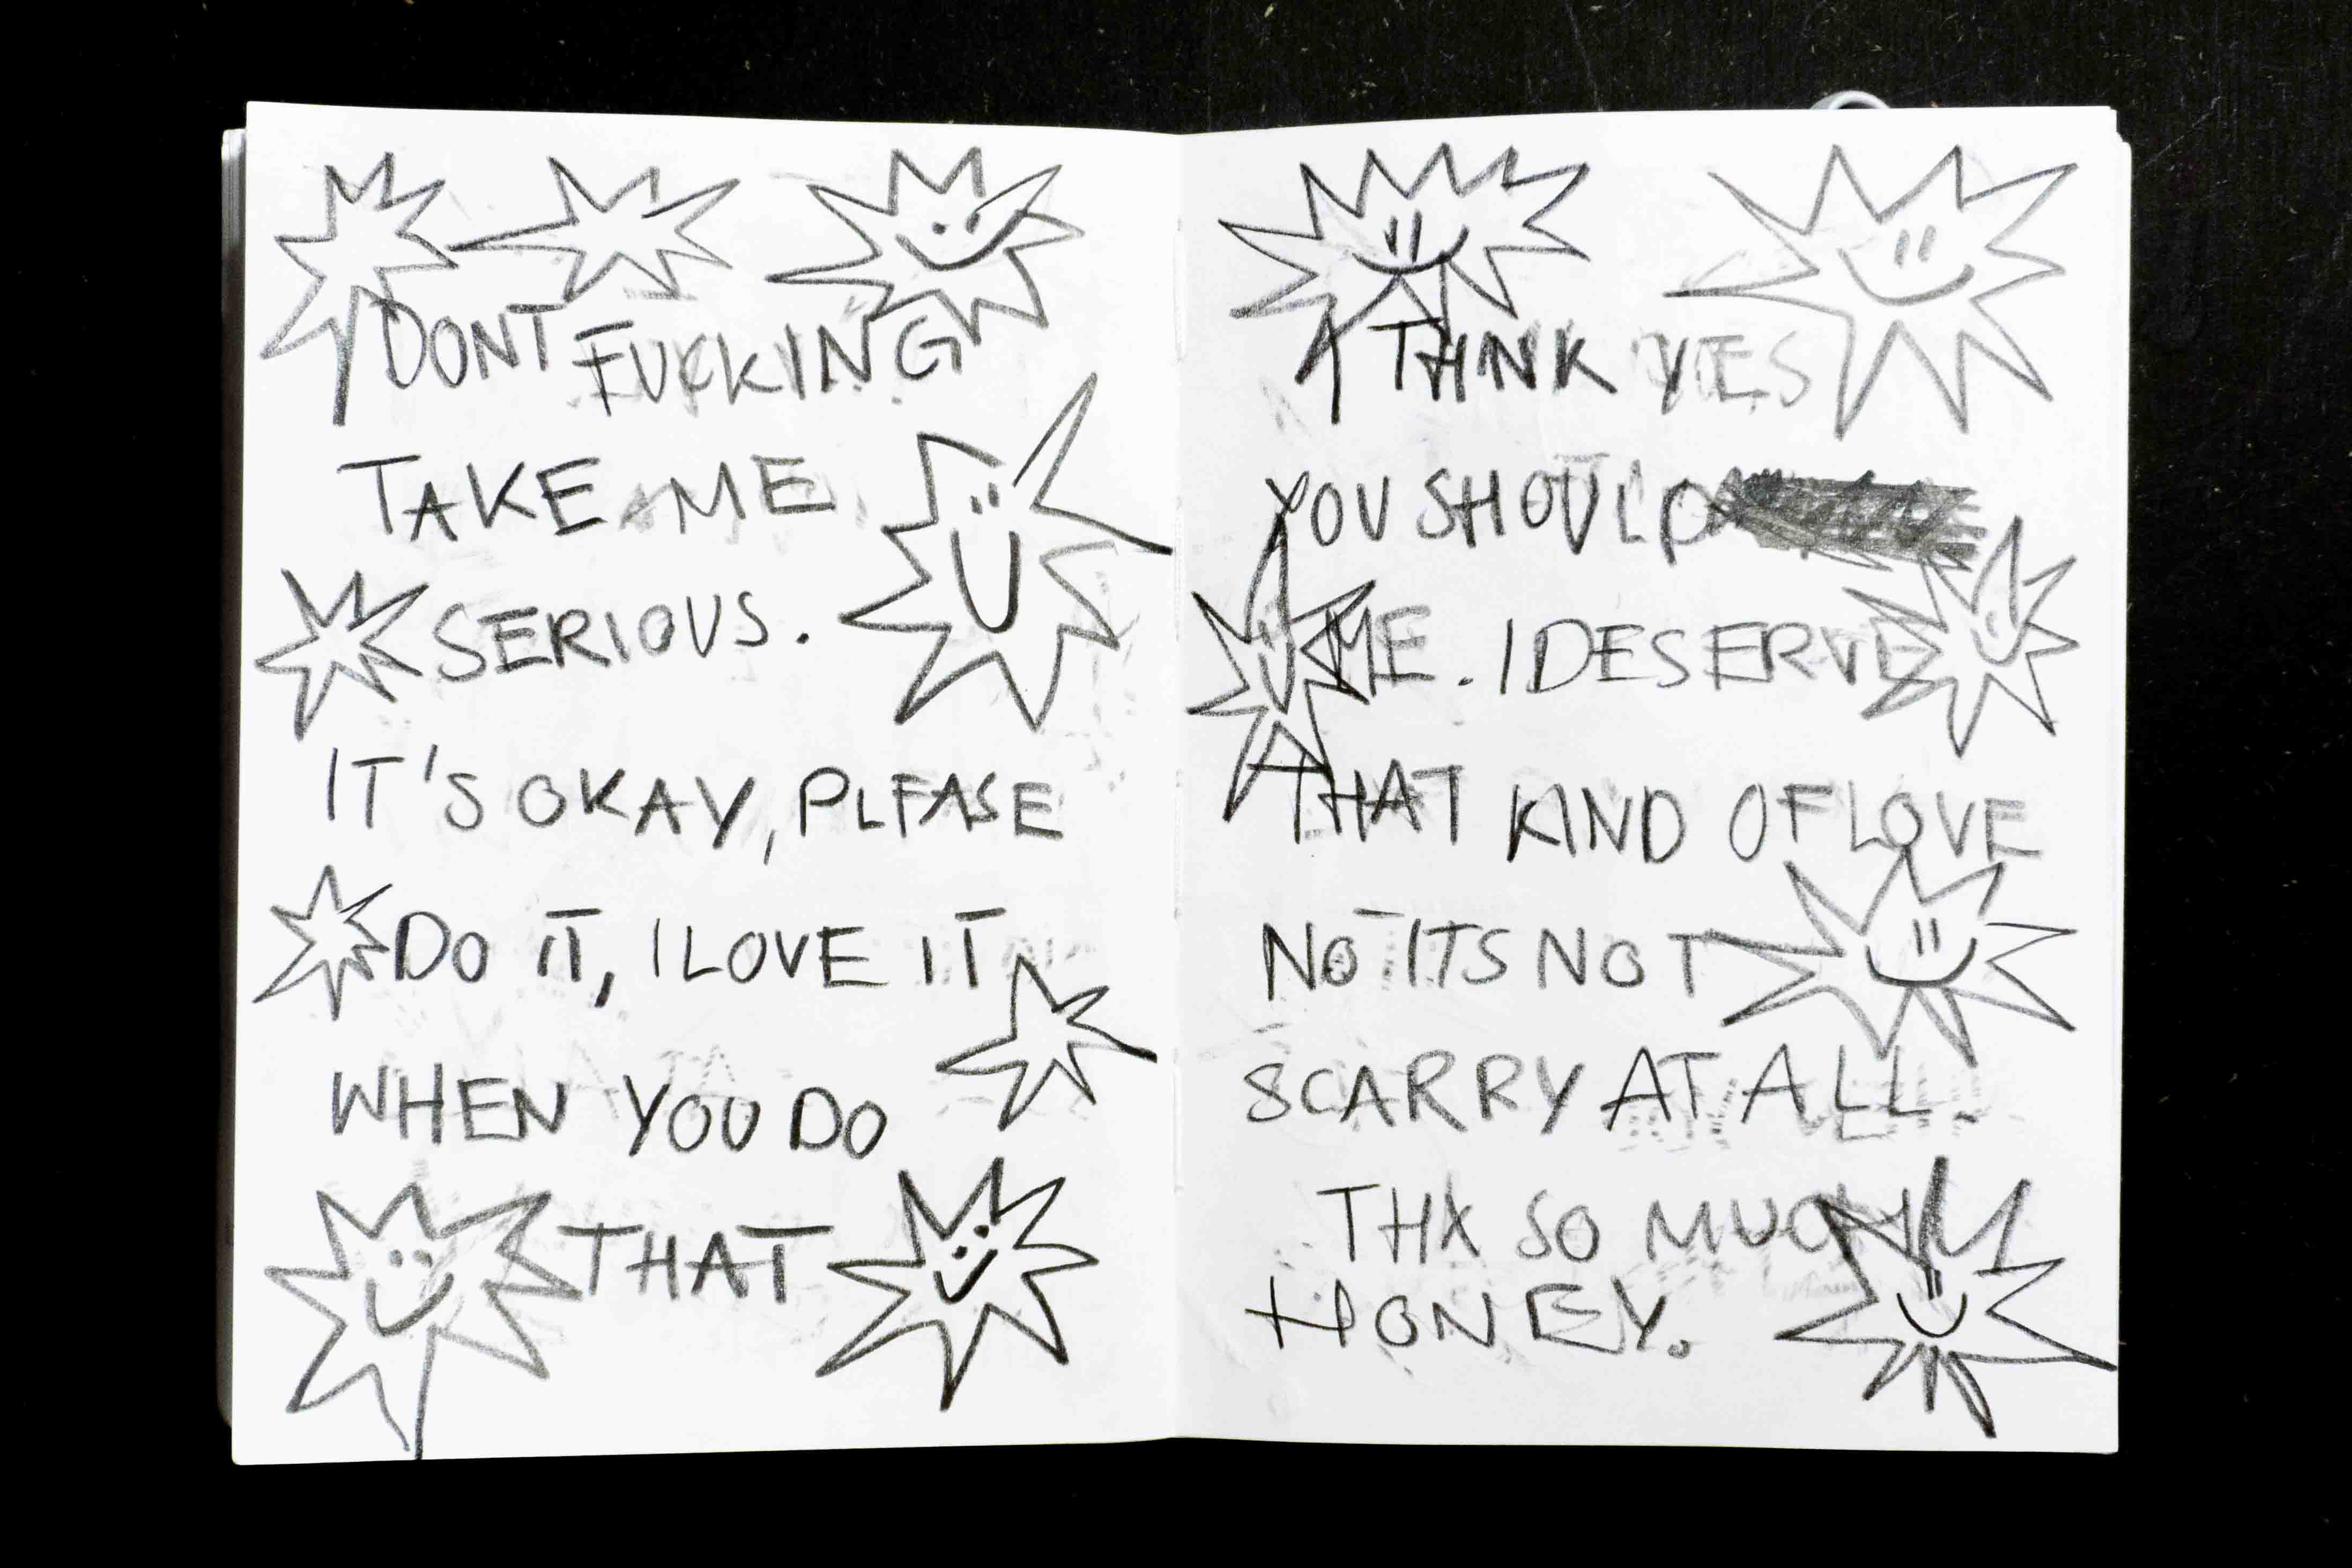 DONT FUCKING
TAKE ME
SERIOUS.
IT'S OKAY, PLEASE
DO IT, I LOVE IT
WHEN YOU DO
THAT
I THNK YES
YOU SHOULD
ME. I DESERVE
THAT KIND OF LOVE
NO ITS NOT
SCARRY AT ALL.
THX SO MUCH
HONEY.